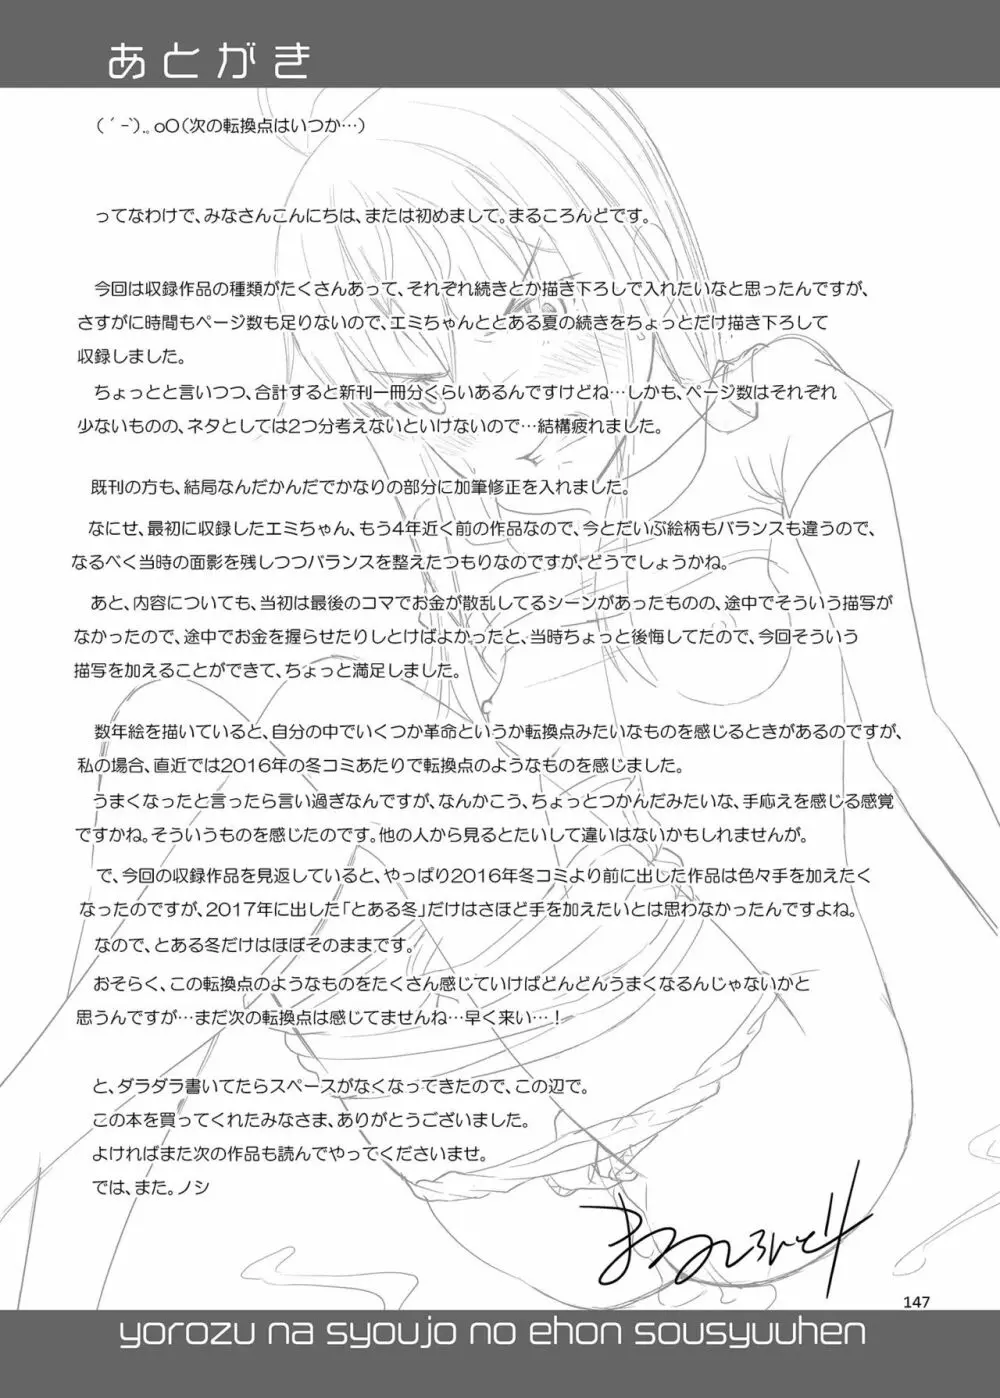 あとがき
( ´ -`).。oO(次の転換点はいつか…)
ってなわけで、みなさんこんにちは、または初めまして。まるころんどです。
今回は収録作品の種類がたくさんあって、それぞれ続きとか描き下ろしで入れたいなと思ったんですが、
さすがに時間もページ数も足りないので、エミちゃんととある夏の続きをちょっとだけ描き下ろして
収録しました。
ちょっとと言いつつ、合計すると新刊一冊分くらいあるんですけどね…しかも、ページ数はそれぞれ
少ないものの、ネタとしては2つ分考えないといけないので…結構疲れました。
既刊の方も、結局なんだかんだでかなりの部分に加筆修正を入れました。
なにせ、最初に収録したエミちゃん、もう4年近く前の作品なので、今とだいぶ絵柄もバランスも違うので、
なるべく当時の面影を残しつつバランスを整えたつもりなのですが、どうでしょうかね。
あと、内容についても、当初は最後のコマでお金が散乱してるシーンがあったものの、途中でそういう描写が
なかったので、途中でお金を握らせたりしとけばよかったと、当時ちょっと後悔してたので、今回そういう
描写を加えることができて、ちょっと満足しました。
数年絵を描いていると、自分の中でいくつか革命というか転換点みたいなものを感じるときがあるのですが、
私の場合、直近では2016年の冬コミあたりで転換点のようなものを感じました。
うまくなったと言ったら言い過ぎなんですが、なんかこう、ちょっとつかんだみたいな、手応えを感じる感覚
ですかね。そういうものを感じたのです。他の人から見るとたいして違いはないかもしれませんが。
で、今回の収録作品を見返していると、やっぱり2016年冬コミより前に出した作品は色々手を加えたく
なったのですが、2017年に出した「とある冬」だけはさほど手を加えたいとは思わなかったんですよね。
なので、とある冬だけはほぼそのままです。
おそらく、この転換点のようなものをたくさん感じていけばどんどんうまくなるんじゃないかと
思うんですが…まだ次の転換点は感じてませんね…早く来い…!
と、ダラダラ書いてたらスペースがなくなってきたので、この辺で。
この本を買ってくれたみなさま、ありがとうございました。
よければまた次の作品も読んでやってくださいませ。
では、また。ノシ
まるころんど
147
yorozu na syoujo no ehon sousyuuhen